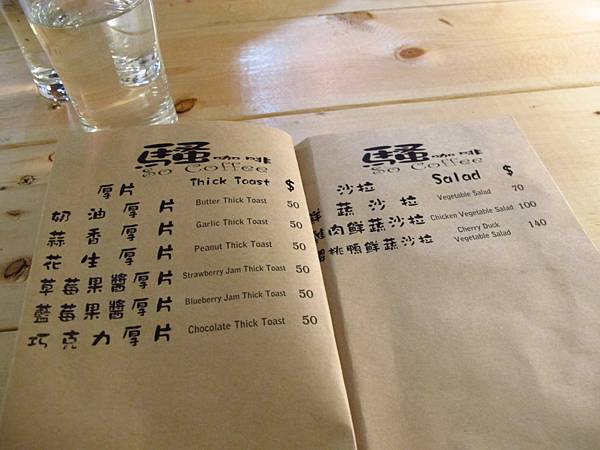 騷咖啡
So Coffee
厚片 Thick Toast $
奶油厚片 Butter Thick Toast 50
蒜香厚片 Garlic Thick Toast 50
花生厚片 Peanut Thick Toast 50
草莓果醬厚片 Strawberry Jam Thick Toast 50
藍莓果醬厚片 Blueberry Jam Thick Toast 50
巧克力厚片 Chocolate Thick Toast 50
騷咖啡
So Coffee
沙拉 Salad $
鮮蔬沙拉 Vegetable Salad 70
雞肉鮮蔬沙拉 Chicken Vegetable Salad 100
櫻桃鴨鮮蔬沙拉 Cherry Duck Vegetable Salad 140